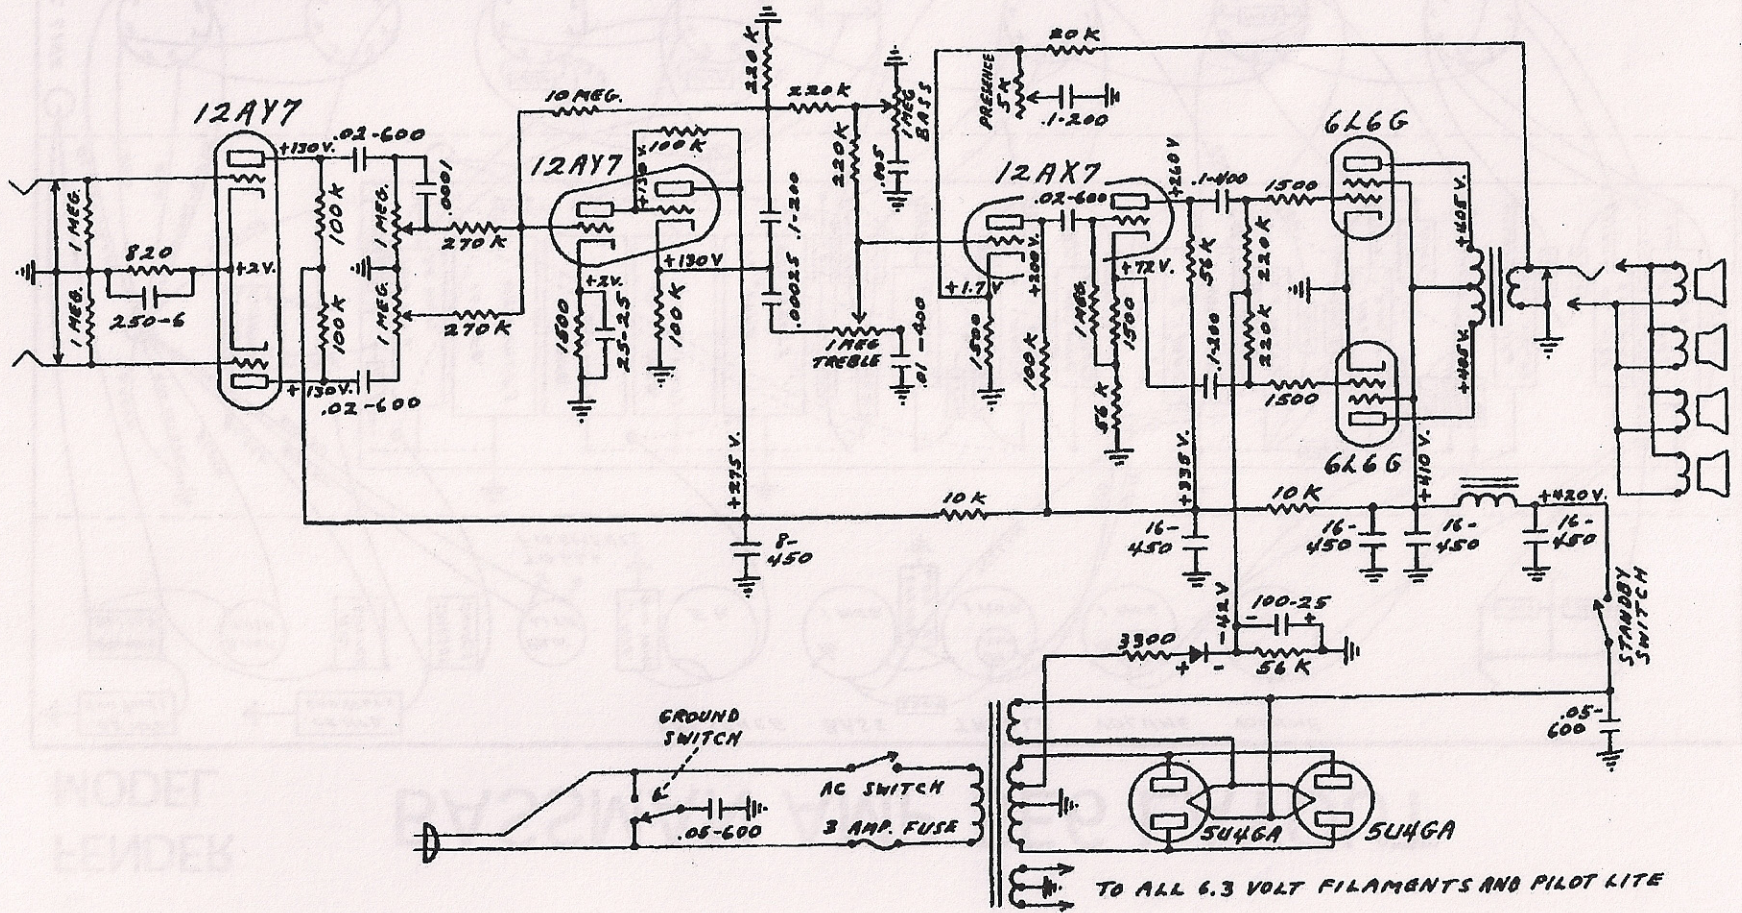 12AY7
+130V.
.02-600
1 MEG.
1 MEG.
820
250-6
+2V.
100K
100K
1 MEG.
1 MEG.
.0001
270K
270K
+130V.
.02-600
10 MEG.
12AY7
+130V.
100K
+2V.
1500
25-25
+130V
100K
220K
220K
220K
.1-200
.00025
1 MEG
BASS
.005
1 MEG
TREBLE
.01-400
+275V.
8-
450
10K
PRESENCE
5K
20K
.1-200
12AX7
.02-600
+1.7V
1500
+200V.
100K
1 MEG.
+72V.
1500
56K
+260V
.1-400
56K
220K
220K
.1-200
1500
1500
6L6G
6L6G
+405V.
+405V.
+335V.
16-
450
10K
16-
450
+410V.
16-
450
+420V.
16-
450
STANDBY
SWITCH
-42V
100-25
- +
3300
+ -
56K
.05-
600
GROUND
SWITCH
.05-600
AC SWITCH
3 AMP. FUSE
5U4GA
5U4GA
TO ALL 6.3 VOLT FILAMENTS AND PILOT LITE
MODEL
FENDER